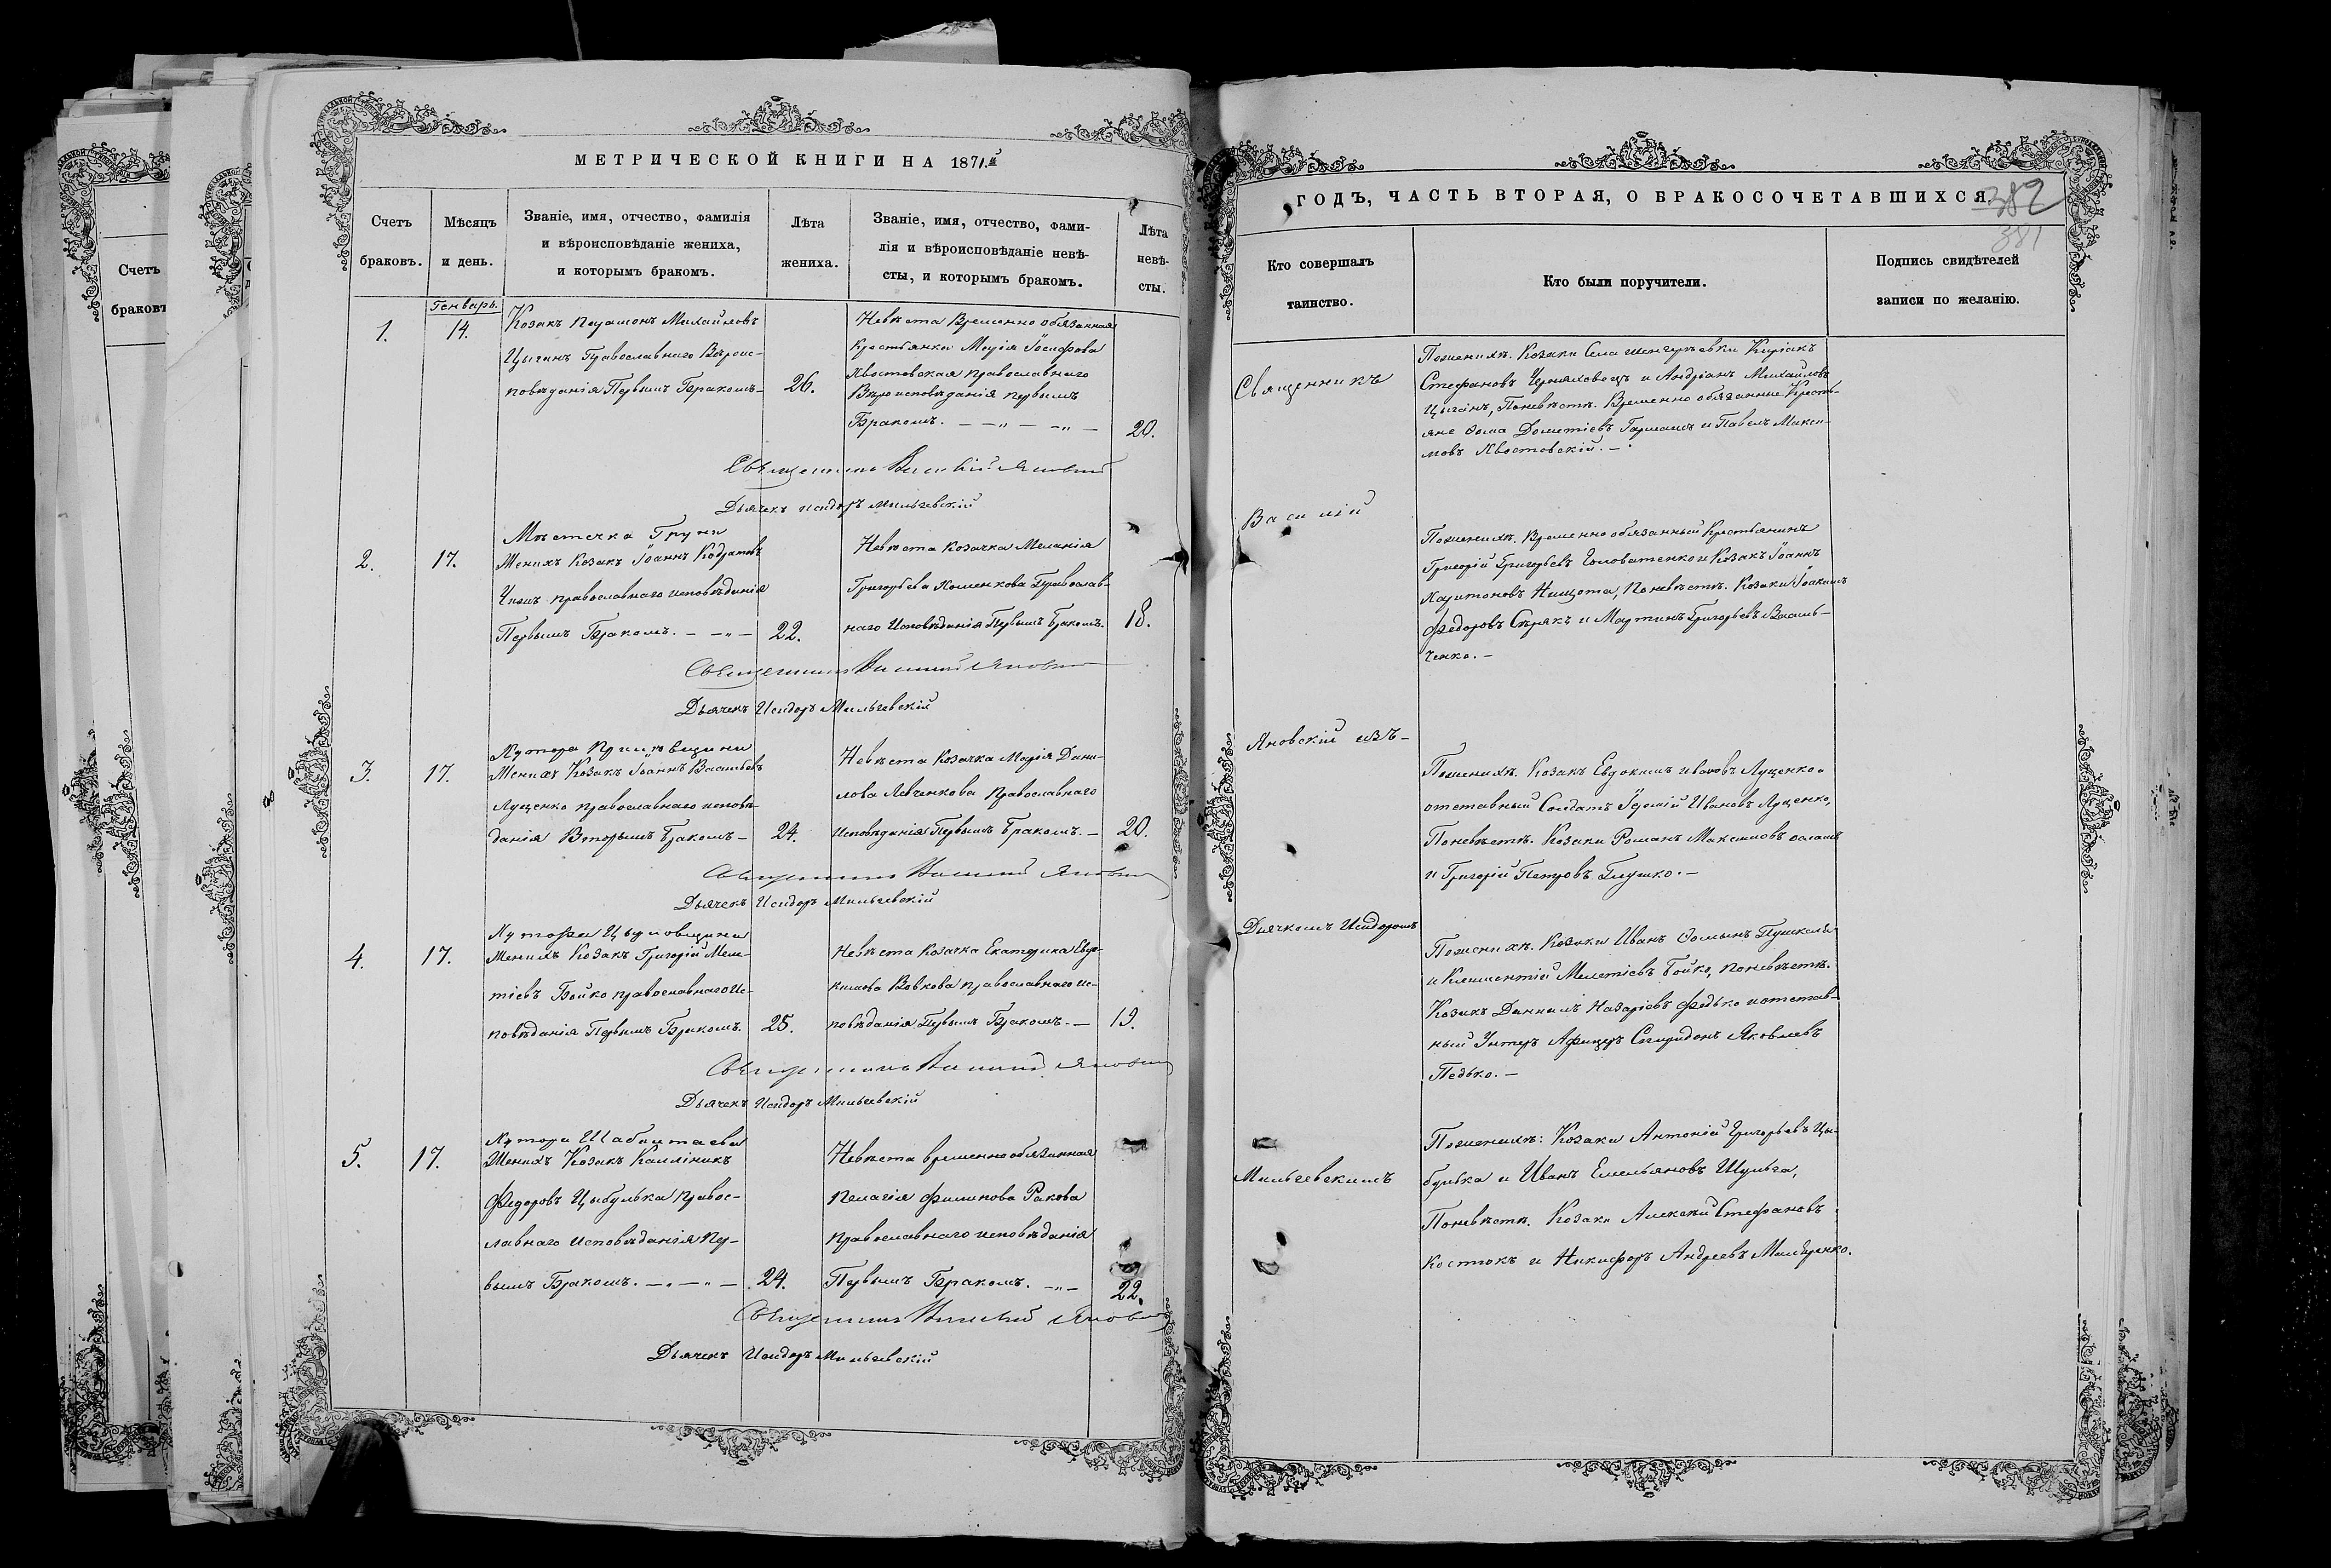 МЕТРИЧЕСКОЙ КНИГИ НА 1871й
Счетъ
браковъ.
Мѣсяцъ
и день.
Званіе, имя, отчество, фамилія
и вѣроисповѣданіе жениха,
и которымъ бракомъ.
Лѣта
жениха.
Званіе, имя, отчество, фами-
лія и вѣроисповѣданіе невѣ-
сты, и которымъ бракомъ.
Лѣта
невѣ-
сты.
Генварь.
1.
14.
Козакъ Михайловъ
Цыганъ Православнаго Вѣроис-
повѣданія Первымъ Бракомъ—
26.
Невѣста Временно обязанная
Крестьянка Марія Іосифова
Хвостовская православнаго
Вѣроисповѣданія первымъ
Бракомъ. — — „ — — „ —
20.
Священникъ Василій Яновскій
Дьячекъ Исидоръ Мильчевскій
2.
17.
Мѣстечка Груни
Женихъ Козакъ Іоаннъ Кодратовъ
православнаго исповѣданія
Первымъ Бракомъ. — — „ —
22.
Невѣста Козачка Меланія
Григорьева Хоменкова Православ-
наго Исповѣданія Первымъ Бракомъ.
18.
Священникъ Василій Яновскій
Дьячекъ Исидоръ Мильчевскій
3.
17.
Хутора
Женихъ Козакъ Іоаннъ Васильевъ
Луценко православнаго исповѣ-
данія Вторымъ Бракомъ—
24.
Невѣста Козачка Марія Дани-
лова Левченкова Православнаго
исповѣданія Первымъ Бракомъ. —
20.
Священникъ Василій Яновскій
Дьячекъ Исидоръ Мильчевскій
4.
17.
Хутора
Женихъ Козакъ Григорій Меле-
тіевъ Бойко православнаго Ис-
повѣданія Первымъ Бракомъ.
25.
Невѣста Козачка Екатерина Евдо-
кимова Вовкова православнаго ис-
повѣданія Первымъ Бракомъ. —
19.
Священникъ Василій Яновскій
Дьячекъ Исидоръ Мильчевскій
5.
17.
Хутора
Женихъ Козакъ Каллиникъ
Федоровъ Цыбулька Правос-
лавнаго Исповѣданія Пер-
вымъ Бракомъ. — „ — „ —
24.
Невѣста временно обязанная
Пелагія Филипова Ракова
православнаго исповѣданія
Первымъ Бракомъ. — „ —
22.
Священникъ Василій Яновскій
Дьячекъ Исидоръ Мильчевскій
ГОДЪ, ЧАСТЬ ВТОРАЯ, О БРАКОСОЧЕТАВШИХСЯ.
382
381
Кто совершалъ
таинство.
Кто были поручители.
Подпись свидѣтелей
записи по желанію.
Священникъ
Василій
Яновскій изъ—
Дьячкомъ Исидоромъ
Мильчевскимъ
Поженихѣ. Козаки Села Киріакъ
Стефановъ Черняховецъ и Андріанъ Михайловъ
Цыганъ, Поневѣстѣ. Временно обязанные Кресть-
яне Ѳома Дометіевъ и Павелъ Макси-
мовъ Хвостовскій. —
Поженихѣ. Временно обязанный Крестьянинъ
Григорій Григорьевъ Головатенко и Козакъ Іоаннъ
Харитоновъ Нищота, Поневѣстѣ. Козаки Іоакимъ
Федоровъ Сѣрякъ и Мартинъ Григорьевъ Василь-
ченко. —
Поженихѣ. Козакъ Евдокимъ Ивановъ Луценко и
отставный Солдатъ Ивановъ Луценко,
Поневѣстѣ. Козаки Романъ Максимовъ
и Григорій Петровъ Глушко. —
Поженихѣ. Козаки Иванъ Ѳоминъ
и Климентій Мелетіевъ Бойко, поневѣстѣ.
Козакъ Даніилъ Назаріевъ Федько и отстав-
ный Унтеръ Афицеръ Спиридонъ Яковлевъ
Педько. —
Поженихѣ: Козаки Антоній Григорьевъ Цы-
булька и Иванъ Емельяновъ Шульга,
Поневѣстѣ. Козаки Алексѣй Стефановъ
Костокъ и Никифоръ Андреевъ
Счетъ
браковъ